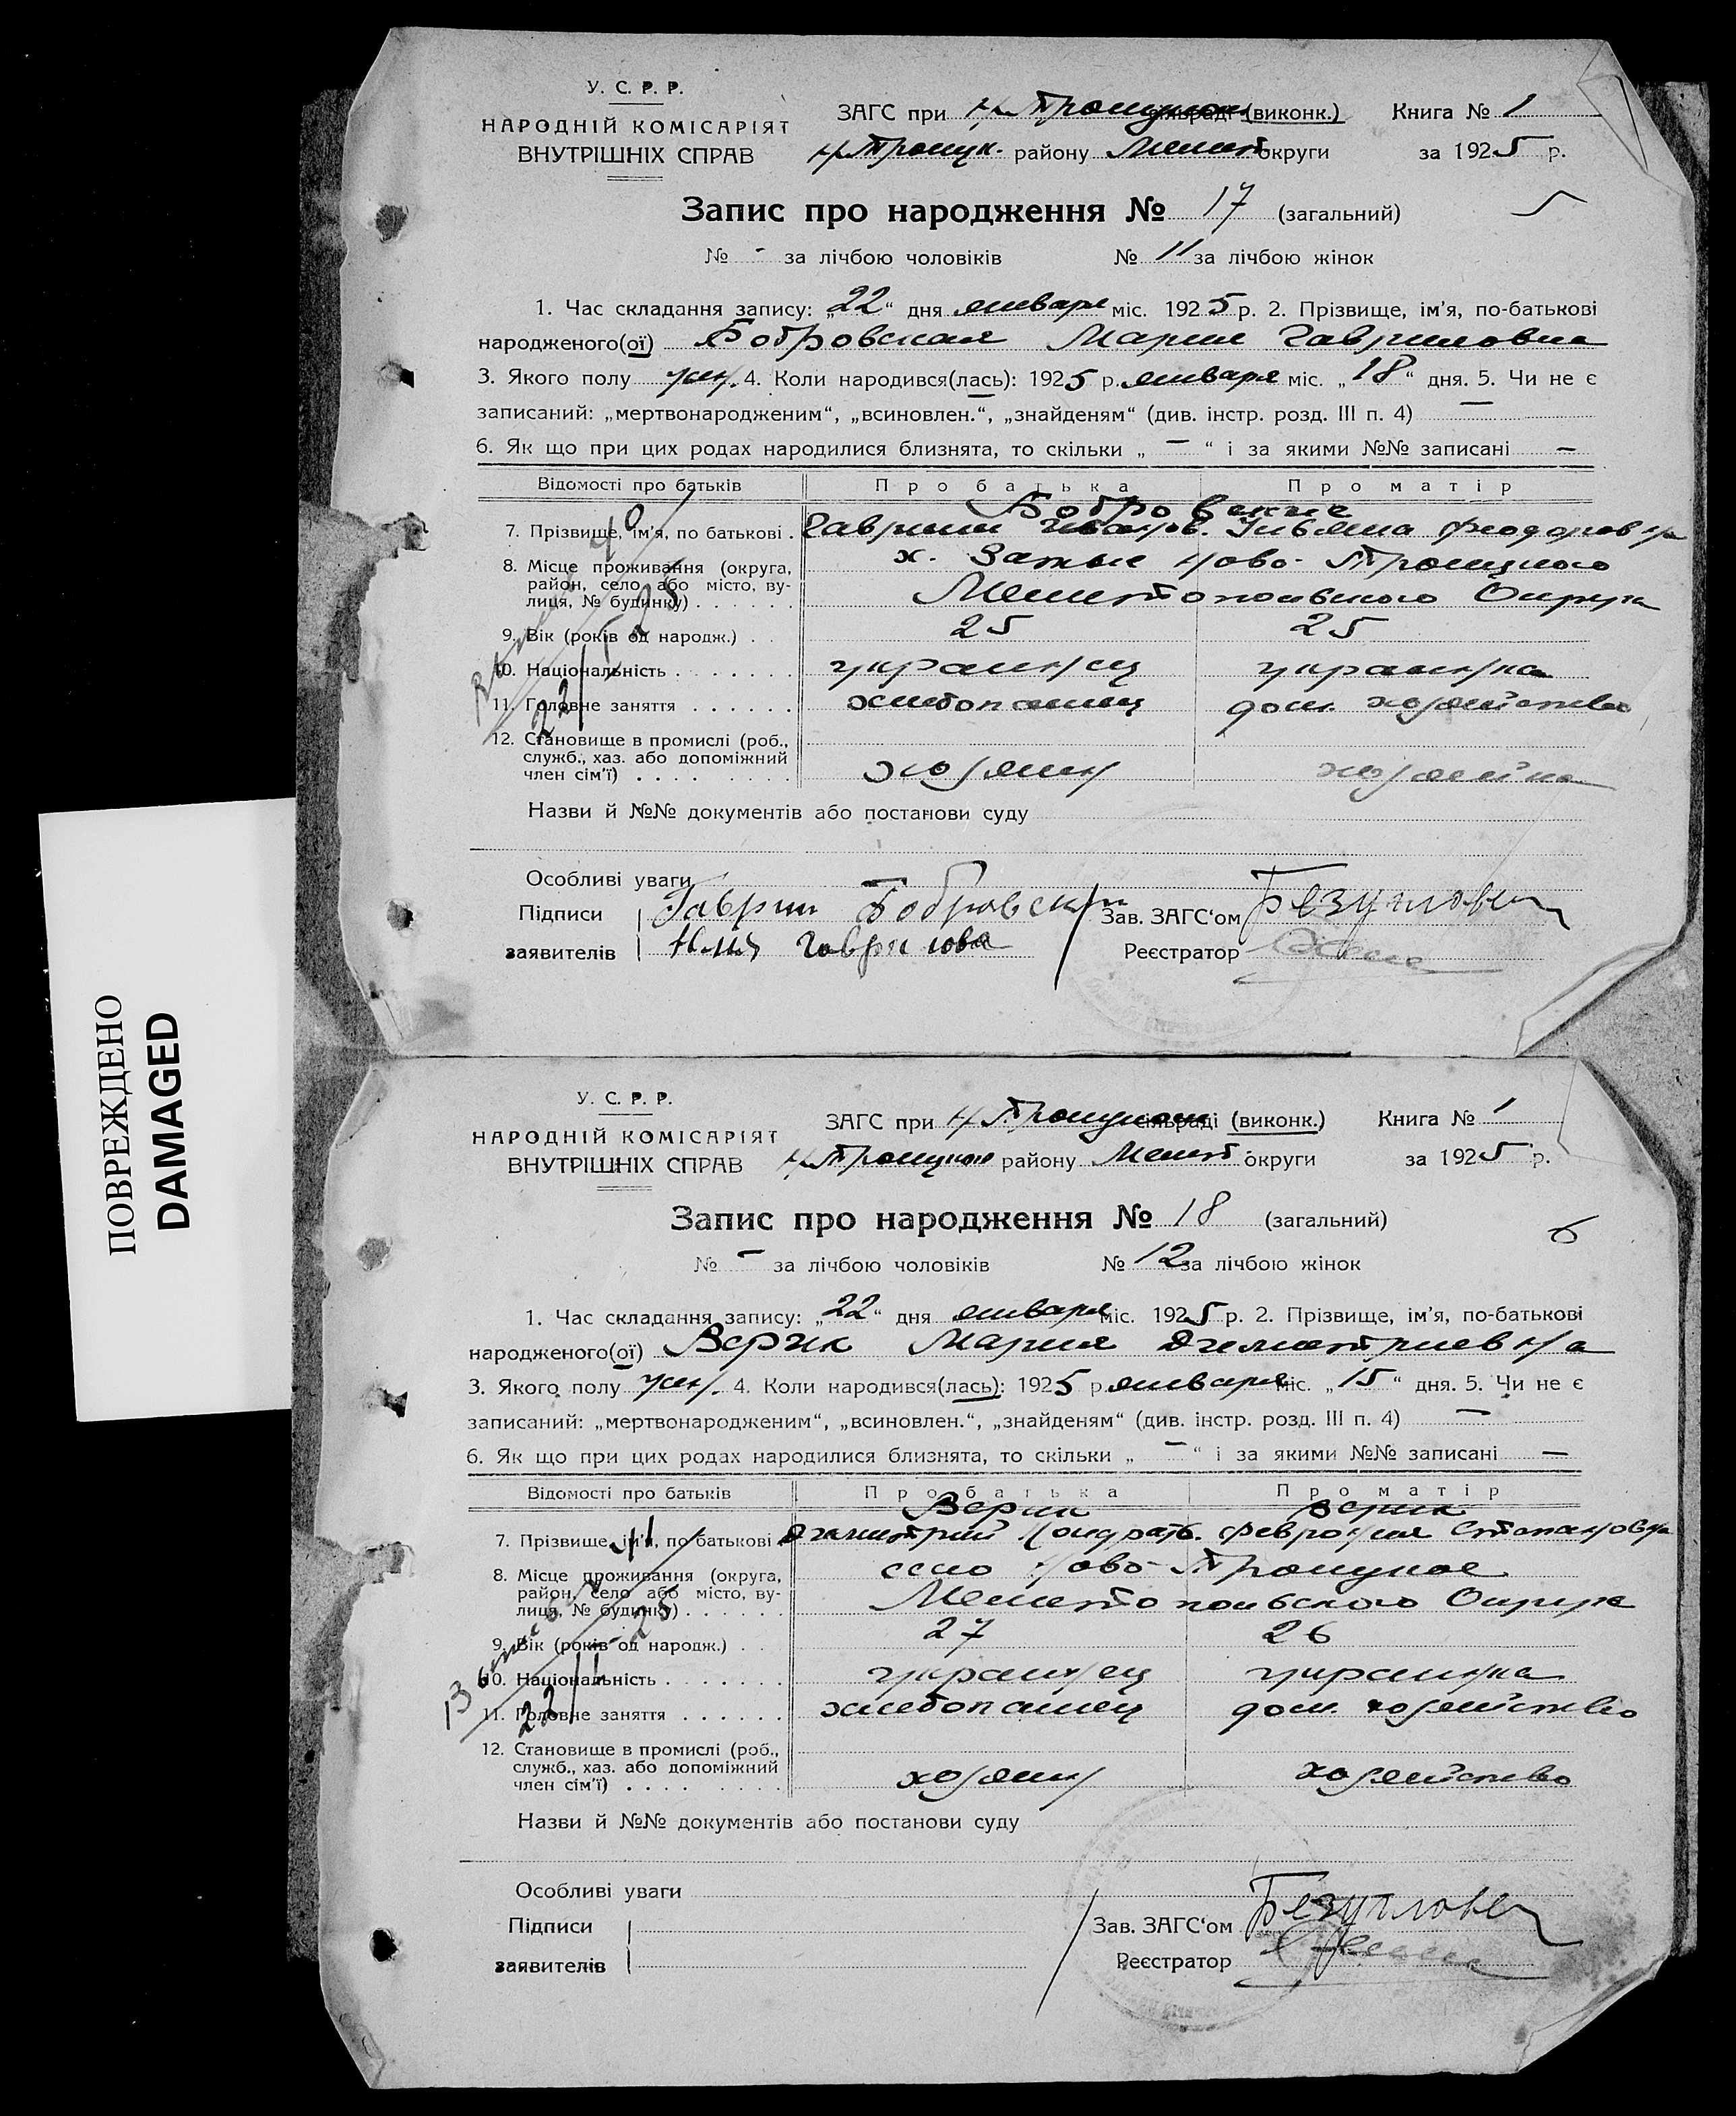 ПОВРЕЖДЕНО
DAMAGED
У. С. Р. Р.
НАРОДНІЙ КОМІСАРІЯТ
ВНУТРІШНІХ СПРАВ
ЗАГС при Н-Троицком сільраді (виконк.) Книга № 1
Н-Троицк. району Мелит. округи за 1925 р.
Запис про народження № 17 (загальний)
5
№ - за лічбою чоловіків № 11 за лічбою жінок
1. Час складання запису: „22“ дня января міс. 1925 р. 2. Прізвище, ім'я, по-батькові
народженого(ої) Бобровская Мария Гавриловна
3. Якого полу жен. 4. Коли народився(лась): 1925 р. января міс. „18“ дня. 5. Чи не є
записаний: „мертвонародженим“, „всиновлен.“, „знайденям“ (див. інстр. розд. III п. 4) —
6. Як що при цих родах народилися близнята, то скільки „ — “ і за якими №№ записані —
Відомості про батьків Про батька Про матір
Бобровские
7. Прізвище, ім'я, по батькові . Гавриил Феодоровна
8. Місце проживання (округа, район, село або місто, вулиця, № будинку) х. Ново-Троицкого
Мелитопольского Округа
9. Вік (років од народж.) . . 25 25
10. Національність . . . . . . . украинец украинка
11. Головне заняття . . . . . . хлебопашец дом. хозяйство
12. Становище в промислі (роб., служб., хаз. або допоміжний член сім'ї) . . . . хозяин хозяйка
Назви й №№ документів або постанови суду
Особливі уваги
Підписи Гаврил Бобровский Зав. ЗАГС'ом
заявителів Реєстратор
У. С. Р. Р.
НАРОДНІЙ КОМІСАРІЯТ
ВНУТРІШНІХ СПРАВ
ЗАГС при Н-Троицком сільраді (виконк.) Книга № 1
Н-Троицкого району Мелит. округи за 1925 р.
Запис про народження № 18 (загальний)
6
№ - за лічбою чоловіків № 12 за лічбою жінок
1. Час складання запису: „22“ дня января міс. 1925 р. 2. Прізвище, ім'я, по-батькові
народженого(ої) Верик Мария Дмитриевна
3. Якого полу жен. 4. Коли народився(лась): 1925 р. января міс. „15“ дня. 5. Чи не є
записаний: „мертвонародженим“, „всиновлен.“, „знайденям“ (див. інстр. розд. III п. 4) —
6. Як що при цих родах народилися близнята, то скільки „ — “ і за якими №№ записані —
Відомості про батьків Про батька Про матір
Верик Верик
7. Прізвище, ім'я, по батькові . Дмитрий Кондрать. Феврония Степановна
8. Місце проживання (округа, район, село або місто, вулиця, № будинку) . . . . . . село Ново-Троицкое
Мелитопольского Округа
9. Вік (років од народж.) . . 27 26
10. Національність . . . . . . . украинец украинка
11. Головне заняття . . . . . . хлебопашец дом. хозяйство
12. Становище в промислі (роб., служб., хаз. або допоміжний член сім'ї) . . . . хозяин хозяйство
Назви й №№ документів або постанови суду
Особливі уваги
Підписи Зав. ЗАГС'ом
заявителів Реєстратор